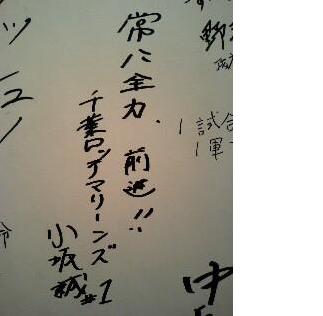 野
試合
1軍
常に全力、前進!!
千葉ロッテマリーンズ
小坂誠 #1
ッシュ
中